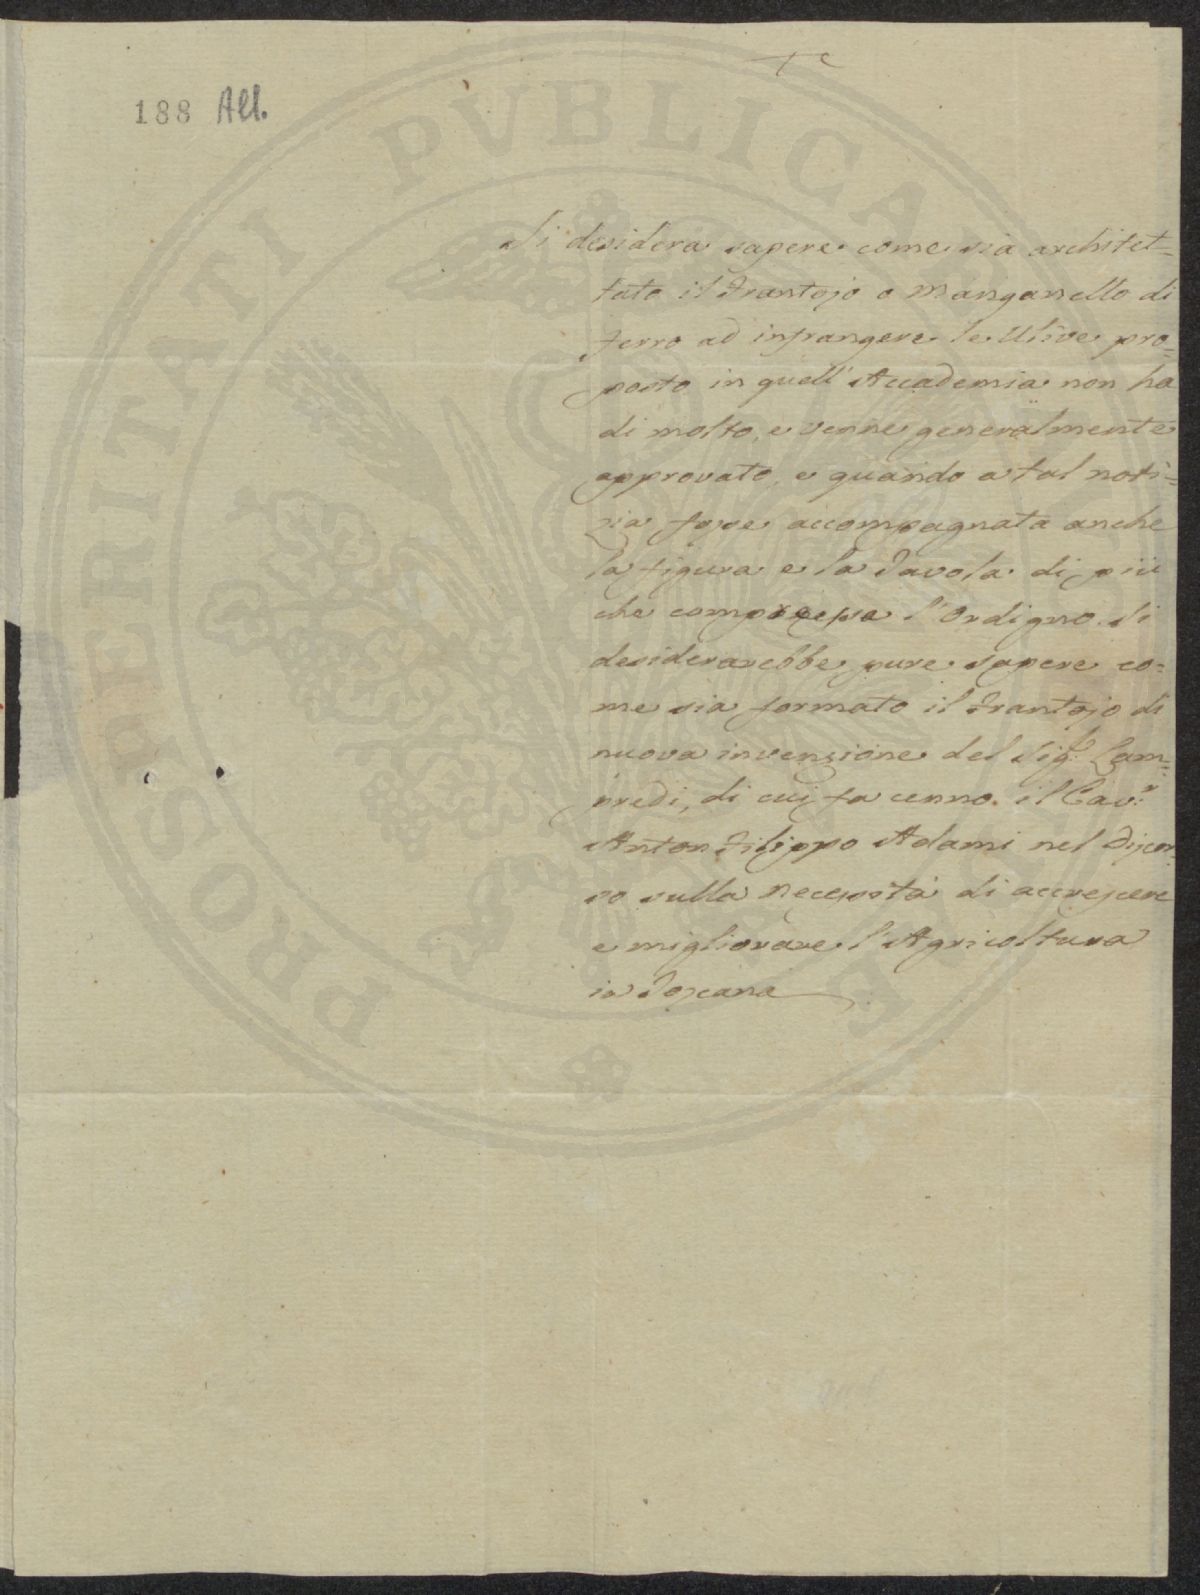 188 All.
Si desidera sapere come sia architet=
tato il Frantojo o Manganello di
ferro ad infrangere le Ulive pro=
posto in quell' Accademia non ha
di molto, e venne generalmente
approvato, e quando a tal noti=
zia fosse accompagnata anche
la figura e la Tavola di più
che compresse l'Ordigno. Si
desiderarebbe pure sapere co=
me sia formato il Frantojo di
nuova invenzione del Sig.r Lam=
predi, di cui fa cenno il Cav.r
Anton Filippo Adami nel Discor=
so sulla necessità di accrescere
e migliorare l'Agricoltura
in Toscana
PROSPERITATI PVBLICAE